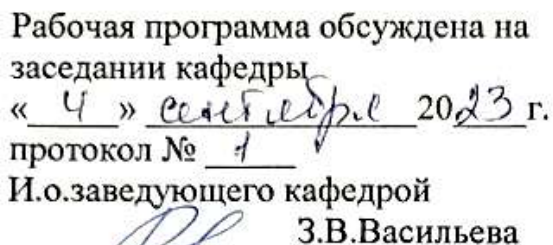 Рабочая программа обсуждена на
заседании кафедры
« 4 » сентября 2023 г.
протокол № 1
И.о.заведующего кафедрой
З.В.Васильева